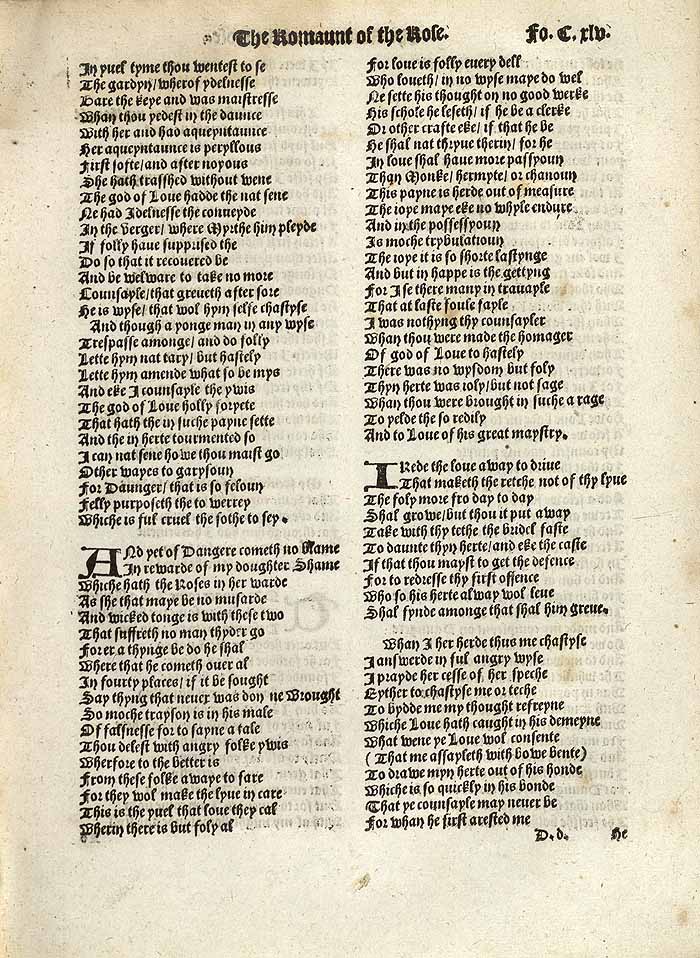 The Romaunt of the Rose.
Fo. C. xlv.
In yuel tyme thou wentest to se
The gardyn/ wherof ydelnesse
Bare the keye and was maistresse
Whan thou yedest in the daunce
With her and had aqueyntaunce
Her aqueyntaunce is peryllous
First softe/ and after noyous
She hath trasshed without wene
The god of Loue hadde the nat sene
Ne had Idelnesse the conueyde
In the verger/ where Myrthe him pleyde
If folly haue supprised the
Do so that it recouered be
And be wel ware to take no more
Counsayle/ that greueth after sore
He is wyse/ that wol hym selfe chastyse
And though a yonge man in any wyse
Trespasse amonge/ and do folly
Lette hym nat tary/ but hastely
Lette hym amende what so be mys
And eke I counsayle the ywis
The god of Loue holly foryete
That hath the in suche payne sette
And the in herte tourmented so
I can nat sene howe thou maist go
Other wayes to garysoun
For Daunger/ that is so feloun
Felly purposeth the to werrey
Whiche is ful cruel the sothe to sey.
ANd yet of Dangere cometh no blame
In rewarde of my doughter Shame
Whiche hath the Roses in her warde
As she that maye be no musarde
And wicked tonge is with these two
That suffreth no man thyder go
For er a thynge be do he shal
Where that he cometh ouer al
In fourty places/ if it be sought
Say thyng that neuer was don ne wrought
So moche trayson is in his male
Of falsnesse for to sayne a tale
Thou delest with angry folke ywis
Wherfore to the better is
From these folke awaye to fare
For they wol make the lyue in care
This is the yuel that loue they cal
Wherin there is but foly al
For loue is folly euery dell
Who loueth/ in no wyse maye do wel
Ne sette his thought on no good werke
His schole he leseth/ if he be a clerke
Or other crafte eke/ if that he be
He shal nat thryue therin/ for he
In loue shal haue more passyoun
Than Monke/ hermyte/ or chanoun
This payne is herde out of measure
The ioye maye eke no whyle endure
And in the possessyoun
Is moche trybulatioun
The ioye it is so shorte lastynge
And but in happe is the gettyng
For I se there many in trauayle
That at laste foule fayle
I was nothyng thy counsayler
Whan thou were made the homager
Of god of Loue to hastely
There was no wysdom but foly
Thyn herte was ioly/ but not sage
Whan thou were brought in suche a rage
To yelde the so redily
And to Loue of his great maystry.
I Rede the loue away to driue
That maketh the retche not of thy lyue
The foly more fro day to day
Shal growe/ but thou it put away
Take with thy tethe the bridel faste
To daunte thyn herte/ and eke the caste
If that thou mayst to get the defence
For to redresse thy first offence
Who so his herte alway wol leue
Shal fynde amonge that shal him greue.
Whan I her herde thus me chastyse
I answerde in ful angry wyse
I prayde her cesse of her speche
Eyther to chastyse me or teche
To bydde me my thought refreyne
Whiche Loue hath caught in his demeyne
What wene ye Loue wol consente
(That me assayleth with bowe bente)
To drawe myn herte out of his honde
Whiche is so quickly in his bonde
That ye counsayle may neuer be
For whan he first arested me
D.d. He